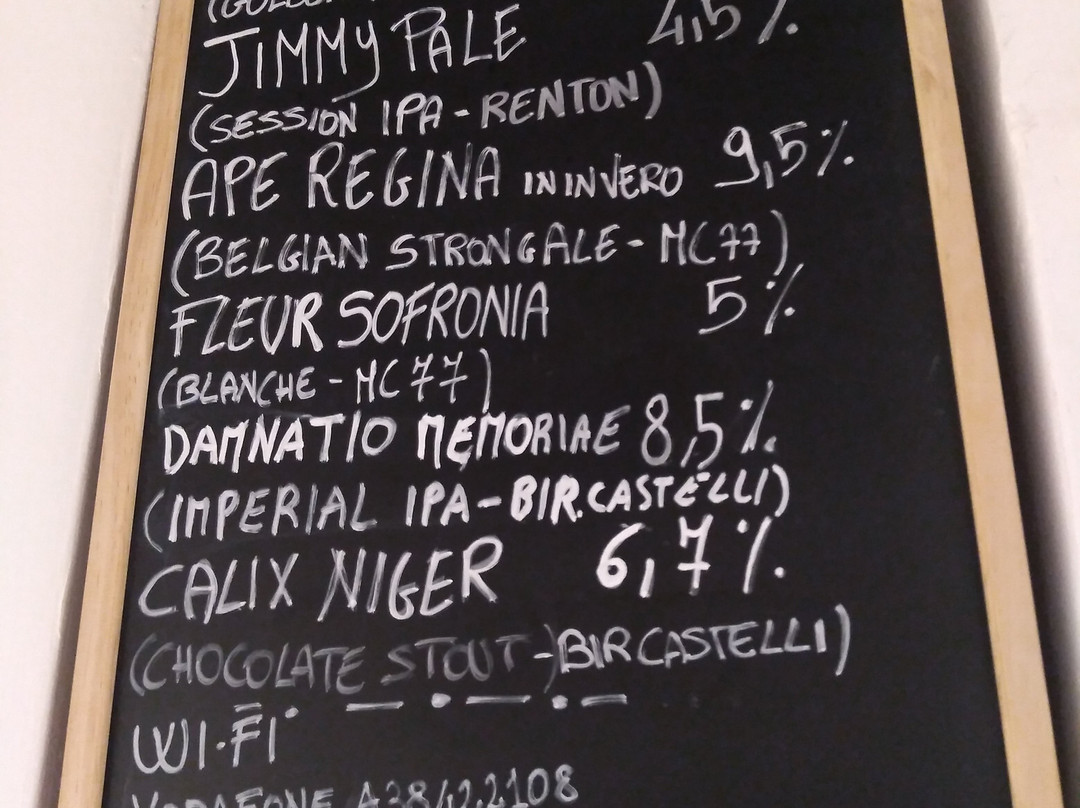 JIMMY PALE 4,5%
(SESSION IPA - RENTON)
APE REGINA IN INVERO 9,5%
(BELGIAN STRONG ALE - MC77)
FLEUR SOFRONIA 5%
(BLANCHE - MC77)
DAMNATIO MEMORIAE 8,5%
(IMPERIAL IPA - BIR.CASTELLI)
CALIX NIGER 6,7%
(CHOCOLATE STOUT -)BIRCASTELLI)
WI-FI